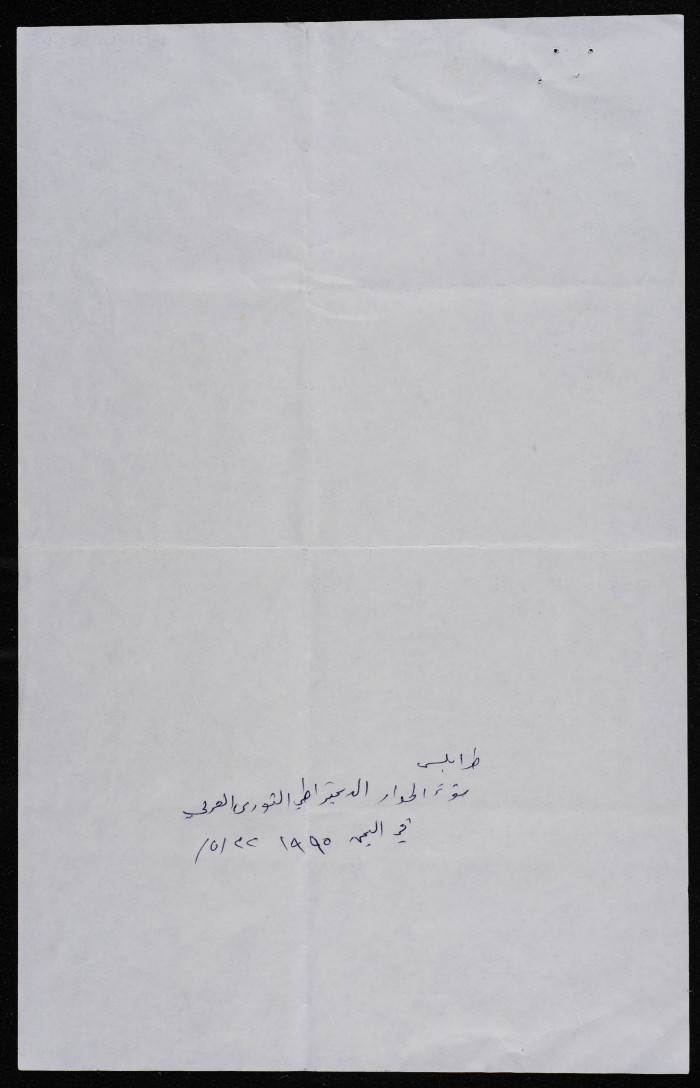 طرابلس
مؤتمر الحوار الديمقراطي الثوري العربي
في اليمن ١٩٩٥ ٢٢/٥/